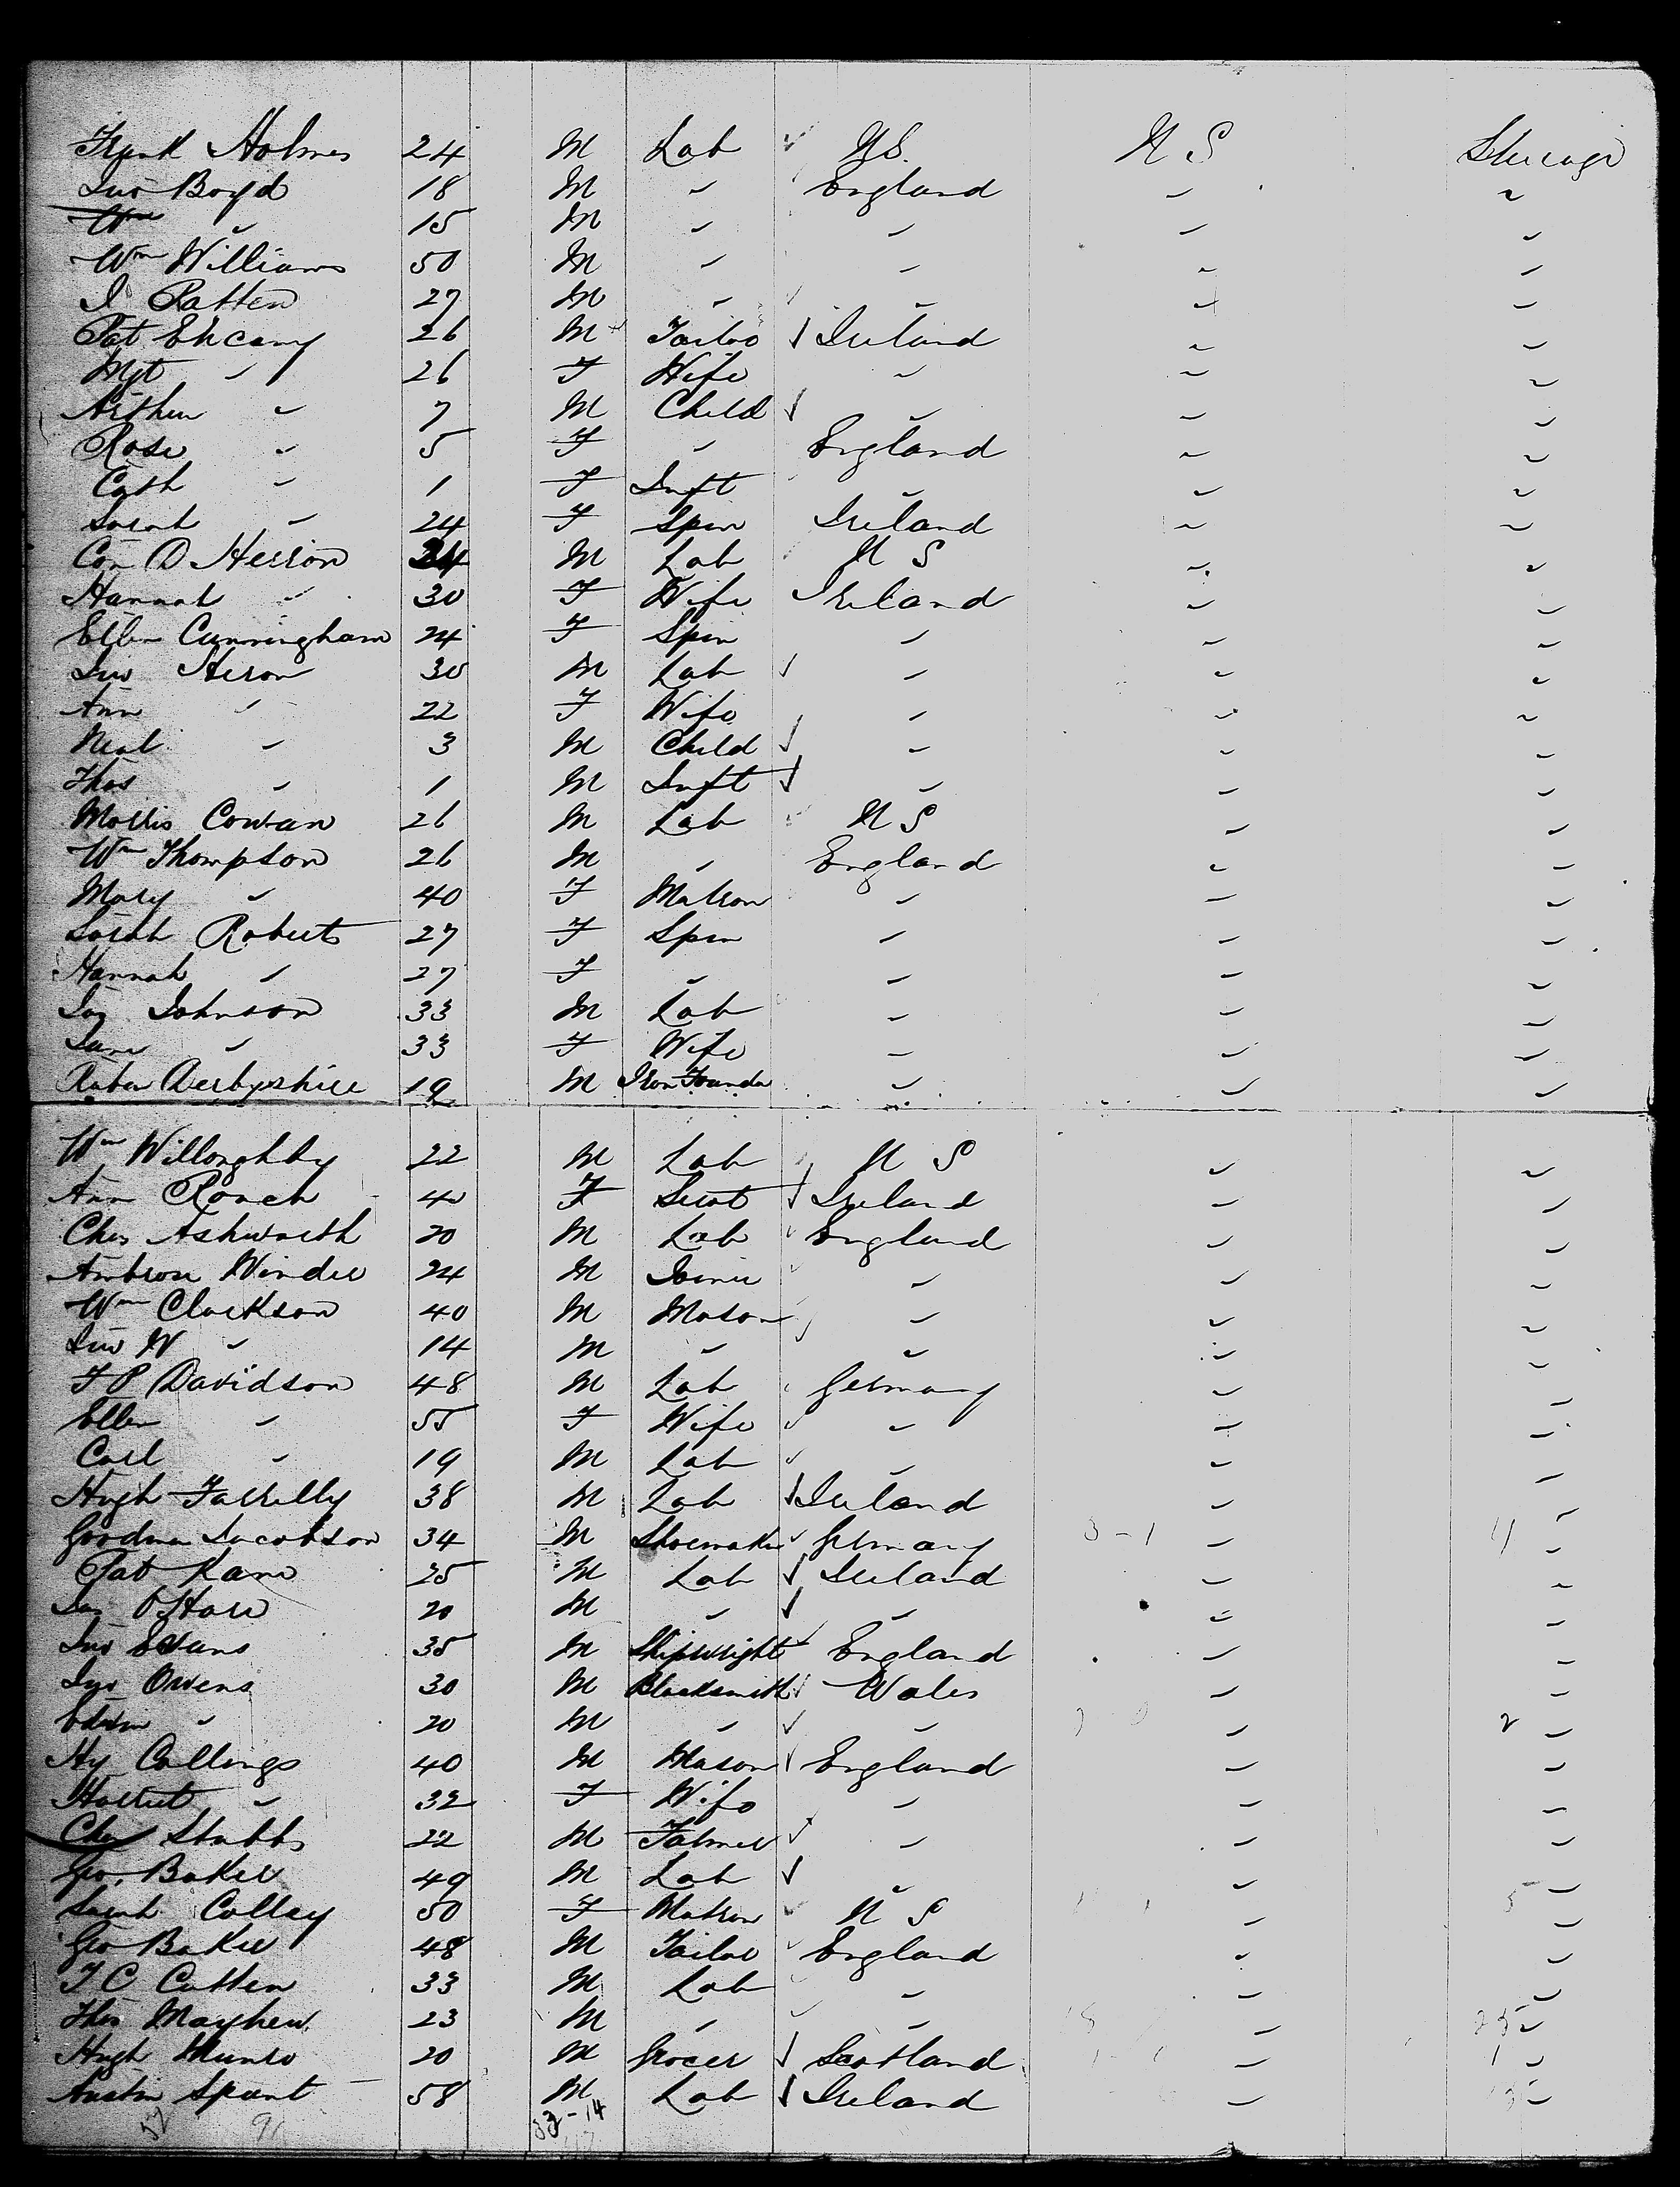 Frank Holmes 24 M Lab U.S. U S Steerage
Jno Boyd 18 M " England " "
Wm " 15 M " " " "
Wm Williams 50 M " " " "
J Patten 27 M " " " "
Pat 26 M Tailor Ireland " "
Mgt " 26 F Wife " " "
Arthur " 7 M Child " " "
Rose " 5 F " England " "
Cath " 1 F Inft " " "
Sarah " 24 F Spin Ireland " "
Con O Herron 24 M Lab U S " "
Hannah " 30 F Wife Ireland " "
Ellen Cunningham 24 F Spin " " "
Jno Heron 30 M Lab " " "
Ann " 22 F Wife " " "
Neal " 3 M Child " " "
Thos " 1 M Inft " " "
Morris Cowan 26 M Lab U S " "
Wm Thompson 26 M " England " "
Mary " 40 F Matron " " "
Sarah Roberts 27 F Spin " " "
Hannah " 27 F " " " "
Jas Johnson 33 M Lab " " "
Jane " 33 F Wife " " "
Derbyshire 19 M Iron Founder " " "
Wm Willoughby 22 M Lab U S " "
Ann Roach 40 F Servt Ireland " "
Chas Ashworth 20 M Lab England " "
Ambrose Winder 24 M Joiner " " "
Wm Clarkson 40 M Mason " " "
Jno W " 14 M " " " "
F P Davidson 48 M Lab Germany " "
Ellen " 55 F Wife " " "
Carl " 19 M Lab " " "
Hugh Farrelly 38 M Lab Ireland " "
Goodman Jacobson 34 M Shoemaker Germany " "
Pat Kane 25 M Lab Ireland " "
Jas O'Hare 20 M " " " "
Jno Evans 35 M Shipwright England " "
Jno Owens 30 M Blacksmith Wales " "
Edwin " 20 M " " " 2 "
Hy Collings 40 M Mason England " "
Harriet " 32 F Wife " " "
Chas Stubbs 22 M Farmer " " "
Geo. Baker 49 M Lab " " "
Sarah Colley 50 F Matron U S " "
Geo Baker 48 M Tailor England " "
T C Cutten 33 M Lab " " "
Thos Mayhew 23 M " " " "
Hugh Munro 20 M Grocer Scotland " "
Austin Spant 58 M Lab Ireland " "
33-14